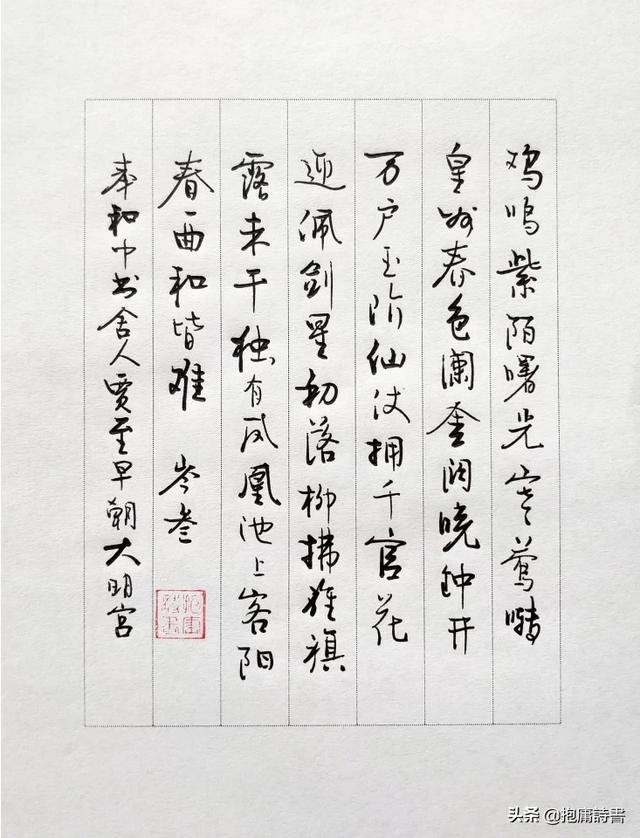 鸡鸣紫陌曙光寒莺啭
皇州春色澜金阙晓钟开
万户玉阶仙仗拥千官花
迎佩剑星初落柳拂旌旗
露未干独有凤凰池上客阳
春一曲和皆难 岑参
奉和中书舍人贾至早朝大明宫
头条 @抱庸詩書